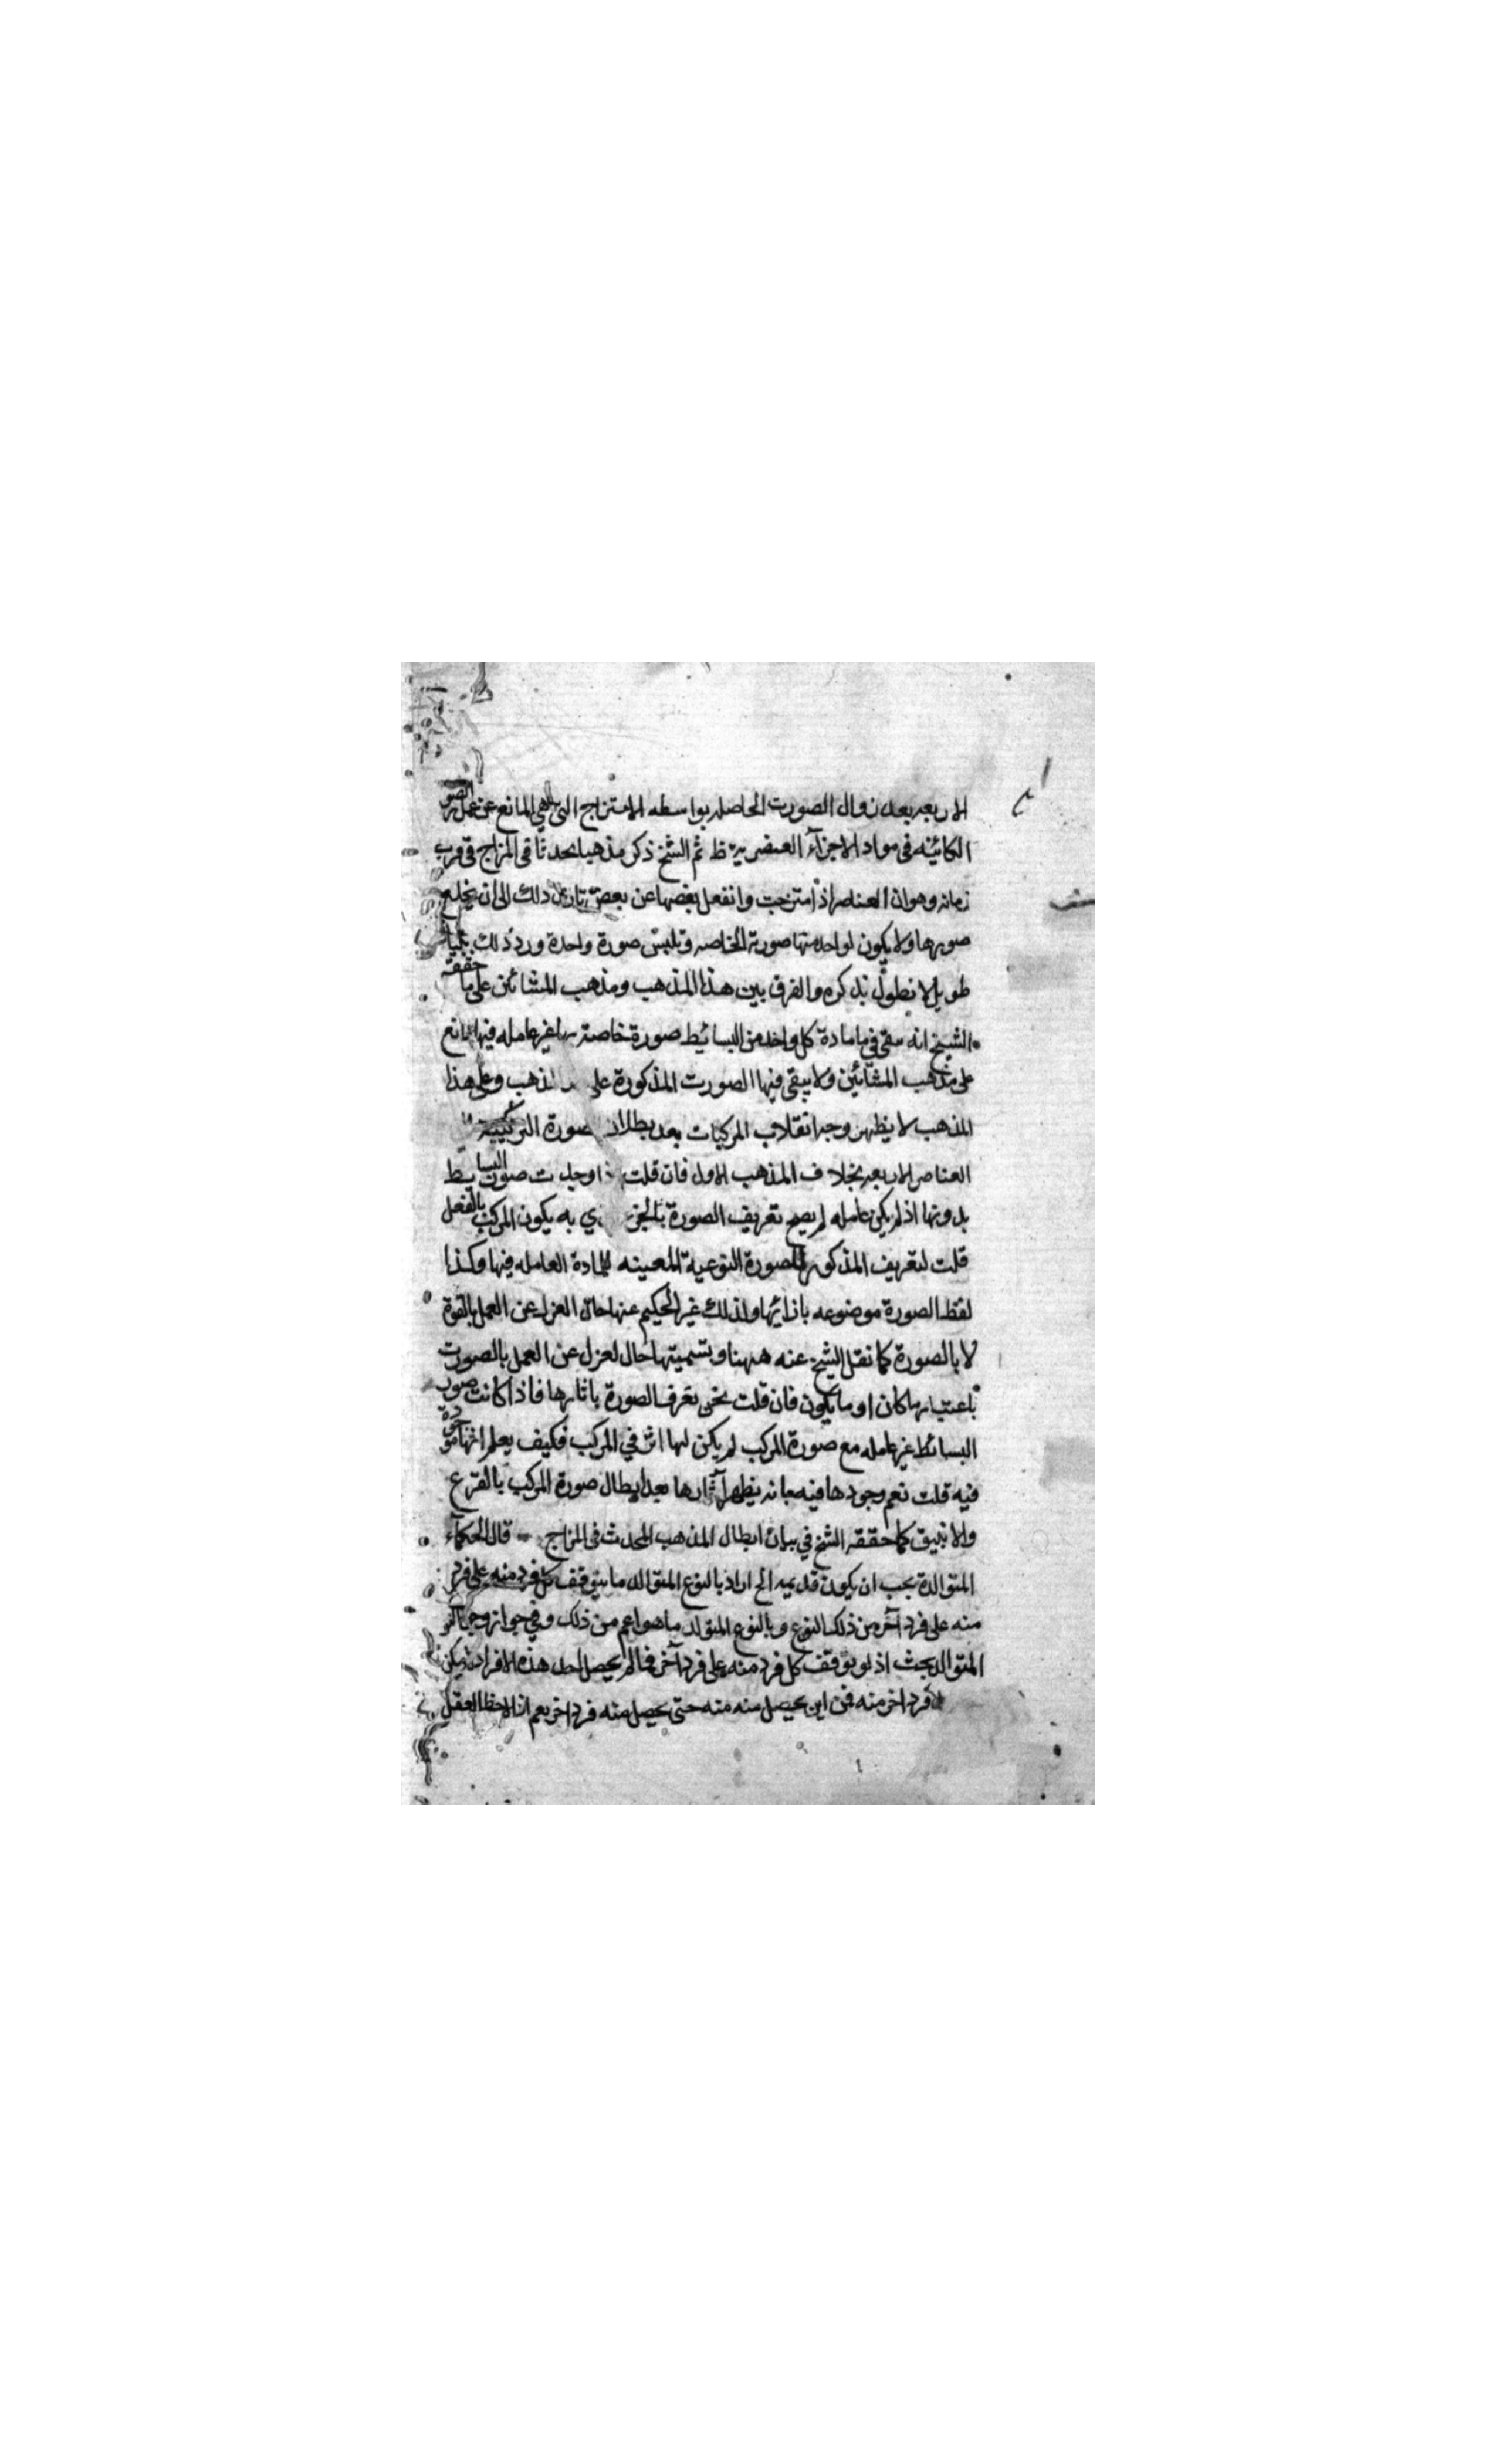 الاربعه بعد زوال الصورت الحاصله بواسطه الامتزاج التى هي المانع عن عمل الصور
الكائنه فى مواد الاجزآء العنصرية ظ ثم الشيخ ذكر مذهبا محدثا فى المزاج فى قرب
زمانه وهو ان العناصر اذ امتزجت وانفعل بعضها عن بعض ذلك الى ان يخلع
صورها ولا يكون لواحد منها صورته الخاصه وتلبس صورة واحدة ورد ذلك
طويل لا نطول بذكره والفرق بين هذا المذهب ومذهب المشائين على ما حققه
الشيخ انه يبقى في مادة كل واحد من البسائيط صورة خاصة غير عامله فيها لمانع
على مذهب المشائين ولا يبقى فيها الصورت المذكورة على ذهب وعلى هذا
المذهب لا يظهر وجه انقلاب المركبات بعد بطلان صورة التركيبية
العناصر الاربعه بخلاف المذهب الاول فان قلت اوجدت صور البسايط
بدونها اذ لم يكن عامله لم يصح تعريف الصورة بالجزء ي به يكون المركب بالفعل
قلت لتعريف المذكور للصورة النوعية المعينه للمادة العامله فيها وكذا
لفظ الصورة موضوعه بازائها ولذلك غير الحكيم عنها حال العزل عن العمل بالقوة
لا بالصورة كما نقل الشيخ عنه ههنا وتسميتها حال لعزل عن العمل بالصورت
باعتبار ما كان او ما يكون فان قلت نحن نعرف الصورة باثارها فاذا كانت صور
البسائط غير عامله مع صورة المركب لم يكن لها اثر في المركب فكيف يعلم انها موجودة
فيه قلت نعم وجودها فيه بانه يظهر آثارها بعد ابطال صورة المركب بالقرع
والانبيق كما حققه الشيخ في بيان ابطال المذهب المحدث فى المزاج قال الحكماء
المتوالدة يجب ان يكون قديمه الخ اراد بالنوع المتوالد ما يتوقف كل فرد منه على فرد
منه على فرد آخر من ذلك النوع وبالنوع المتولد ما هو اعم من ذلك وفي جواز وجود النوع
المتوالد بحث اذ لو توقف كل فرد منه على فرد آخر فما لم يحصل احد هذه الافراد لم يكن
فرد اخر منه فمن اين يحصل منه منه حتى يحصل منه فرد اخر نعم اذا لاحظ العقل